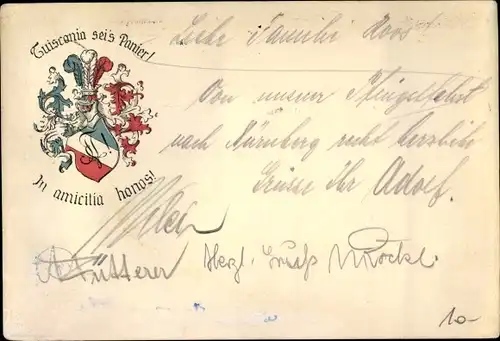 Tuiscania sei's Panier!
In amicitia honos!
Liebe Familie Roos!
Von unserer Pfingstfahrt
nach Nürnberg recht herzliche
Grüsse Ihr Adolf.
Fütterer Herzl. Gruß
10-